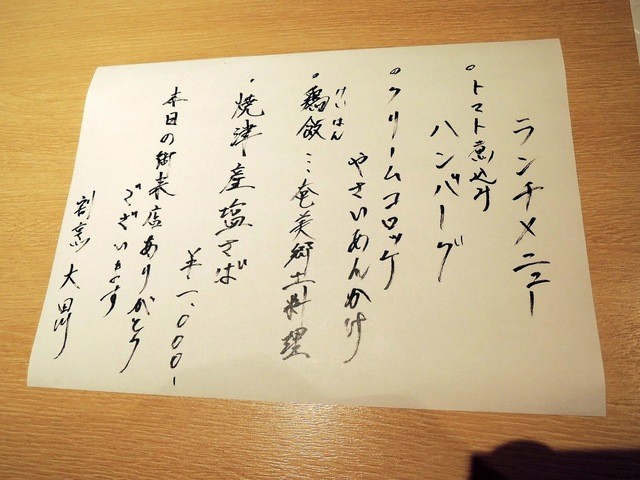 ランチメニュー
。トマト煮込み
ハンバーグ
。クリームコロッケ
やさいあんかけ
けいはん
・鶏飯…奄美郷土料理
・焼津産塩さば
¥一、000-
本日の御来店ありがとう
ございます
割烹 大田川